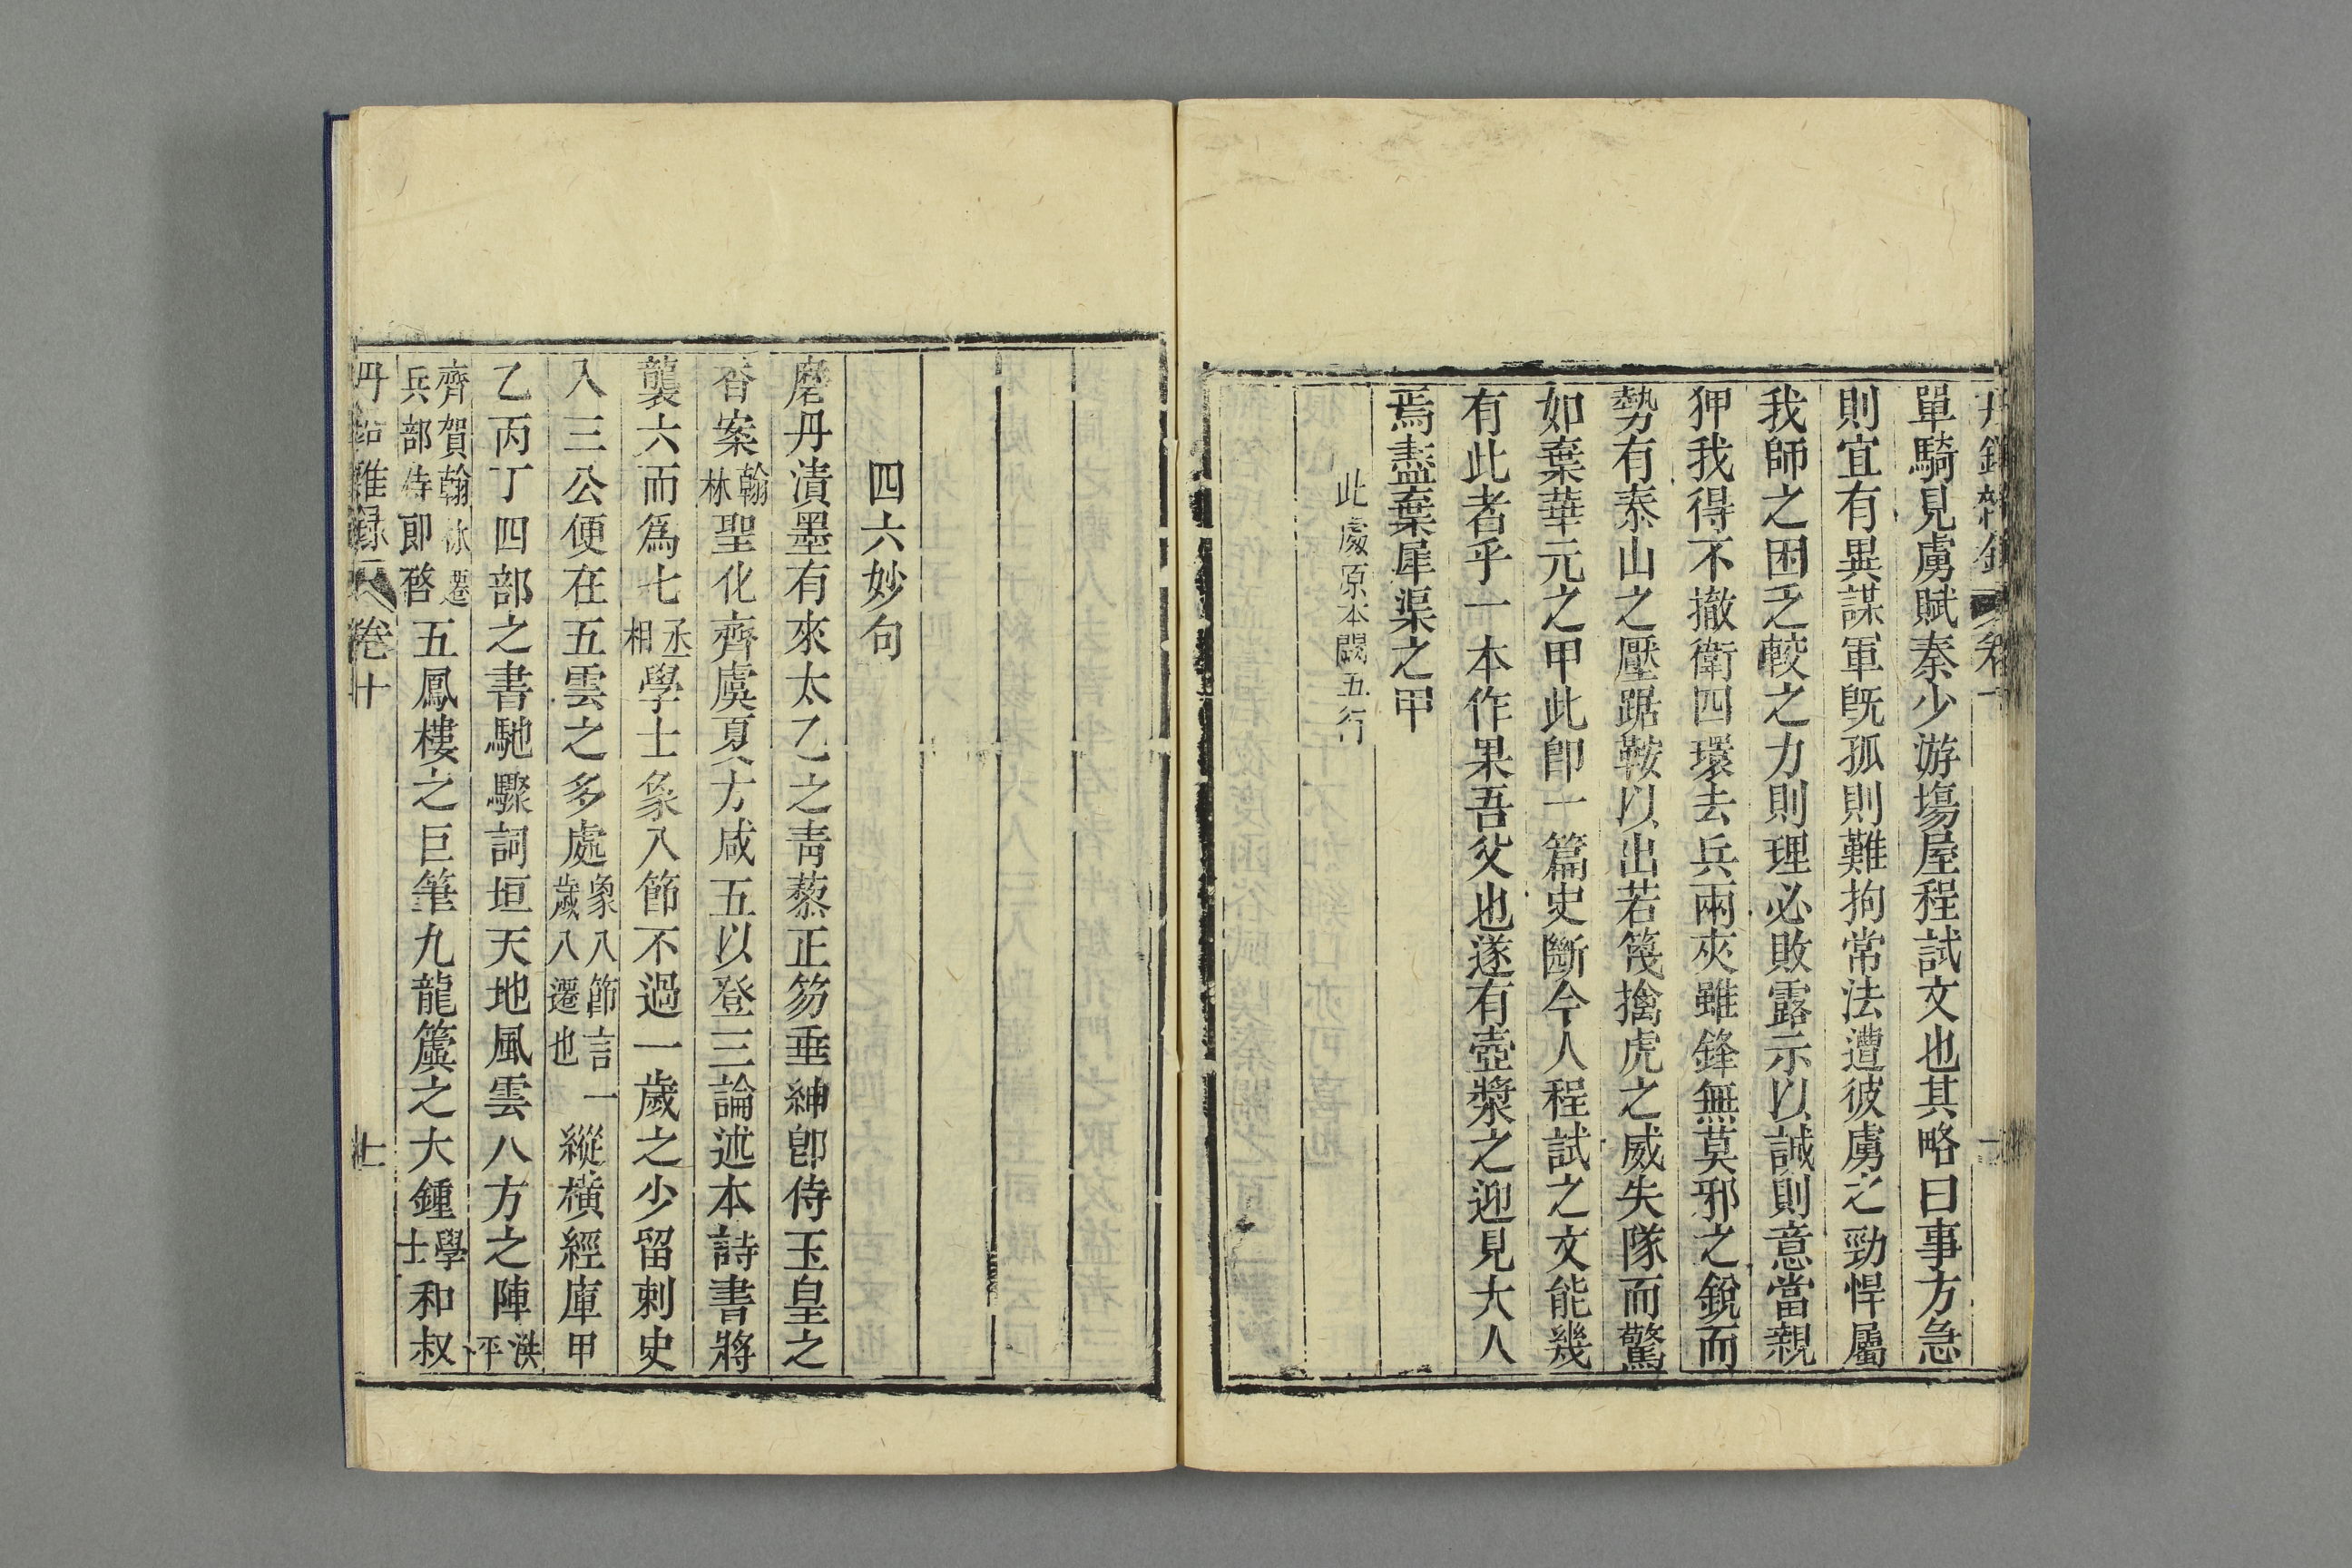 丹鉛雜錄 卷十
單騎見虜賦秦少游塲屋程試文也其略曰事方急
則宜有異謀軍旣孤則難拘常法遭彼虜之勁悍屬
我師之困乏較之力則理必敗露示以誠則意當親
狎我得不撤衛四環去兵兩夾雖鋒無莫邪之銳而
勢有泰山之壓踞鞍以出若篾擒虎之威失隊而驚
如棄華元之甲此卽一篇史斷今人程試之文能幾
有此者乎一本作果吾父也遂有壺漿之迎見大人
焉盡棄犀渠之甲
此處原本闕五行
四六妙句
磨丹漬墨有來太乙之靑藜正笏垂紳卽侍玉皇之
香案翰林聖化齊虞夏方咸五以登三論述本詩書將
襲六而爲七丞相學士象入節不過一歲之少留刺史
入三公便在五雲之多處象八節言一歲八遷也縱橫經庫甲
乙丙丁四部之書馳驟詞垣天地風雲八方之陣洪平
齊賀翰林遷兵部侍郎啓五鳳樓之巨筆九龍簴之大鍾學士和叔
丹鉛雜録 卷十 七